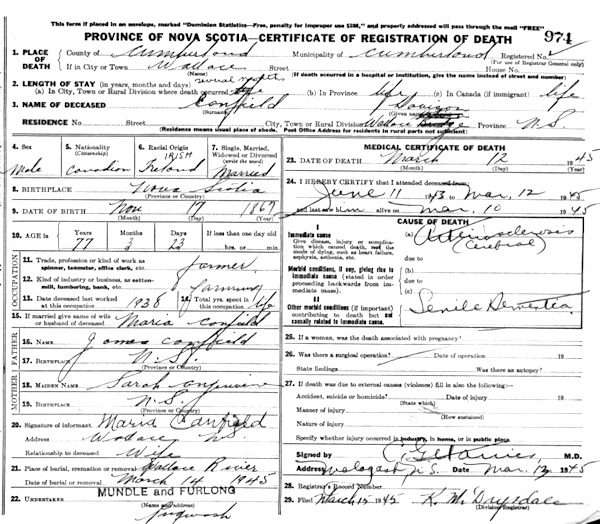 This form if placed in an envelope, marked "Dominion Statistics—Free, penalty for improper use $300," and properly addressed will pass through the mail "FREE"
PROVINCE OF NOVA SCOTIA—CERTIFICATE OF REGISTRATION OF DEATH 971
1. PLACE OF DEATH County of Cumberland Municipality of Cumberland Registered No.
(For use of Registrar General only)
If in City or Town Wallace Street House No.
(Name) (If death occurred in a hospital or institution, give the name instead of street and number)
2. LENGTH OF STAY (in years, months and days) several months
(a) In City, Town or Rural Division where death occurred (b) In Province life (c) In Canada (if immigrant) life
3. NAME OF DECEASED Canfield
(Surname) (Given names)
RESIDENCE No. Street City, Town or Rural Division Wallace Bridge Province N.S.
(Residence means usual place of abode. Post Office Address for residents in rural parts not sufficient)
4. Sex Male
5. Nationality (Citizenship) Canadian
6. Racial Origin IRISH Ireland
7. Single, Married, Widowed or Divorced (write the word) Married
8. BIRTHPLACE Nova Scotia
(Province or Country)
9. DATE OF BIRTH Nov 1867
(Month) (Day) (Year)
10. AGE Years 77 Months 3 Days 23 If less than one day hrs. or min.
OCCUPATION
11. Trade, profession or kind of work as spinner, teamster, office clerk, etc. farmer
12. Kind of industry or business, as cotton-mill, lumbering, bank, etc. farming
13. Date deceased last worked at this occupation 1938
14. Total yrs. spent in this occupation life
15. If married give name of wife or husband of deceased Maria Canfield
FATHER
16. Name James Canfield
17. Birthplace N.S.
(Province or Country)
MOTHER
18. Maiden Name Sarah
19. Birthplace N.S.
(Province or Country)
20. Signature of informant Maria Canfield
Address Wallace N.S.
Relationship to deceased Wife
21. Place of burial, cremation or removal Wallace River
Date of burial or removal March 14 1945
22. UNDERTAKER MUNDLE and FURLONG
(Name and address)
Pugwash
MEDICAL CERTIFICATE OF DEATH
23. DATE OF DEATH March 12 1945
(Month) (Day) (Year)
24. I HEREBY CERTIFY that I attended deceased from
June 11 1943 to Mar. 12 1945
and last saw him alive on Mar. 10 1945
CAUSE OF DEATH
I
Immediate cause
Give disease, injury or complication which caused death, not the mode of dying, such as heart failure, asphyxia, asthenia, etc.
(a) Arteriosclerosis (Cerebral)
due to
Morbid conditions, if any, giving rise to immediate cause (stated in order proceeding backwards from immediate cause).
(b)
due to
(c)
II
Other morbid conditions (if important) contributing to death but not causally related to immediate cause.
Senile Dementia
25. If a woman, was the death associated with pregnancy?
26. Was there a surgical operation? Date of operation 19
State findings Was there an autopsy?
27. If death was due to external causes (violence) fill in also the following:—
Accident, suicide or homicide? Date of injury 19
(State which)
Manner of injury
(How sustained)
Nature of injury
Specify whether injury occurred in industry, in home, or in public place.
Signed by M.D.
Address N.S. Date Mar. 13 1945
28. Registrar's Record Number
29. Filed March 15 1945 K. M. Drysdale
(Division Registrar)